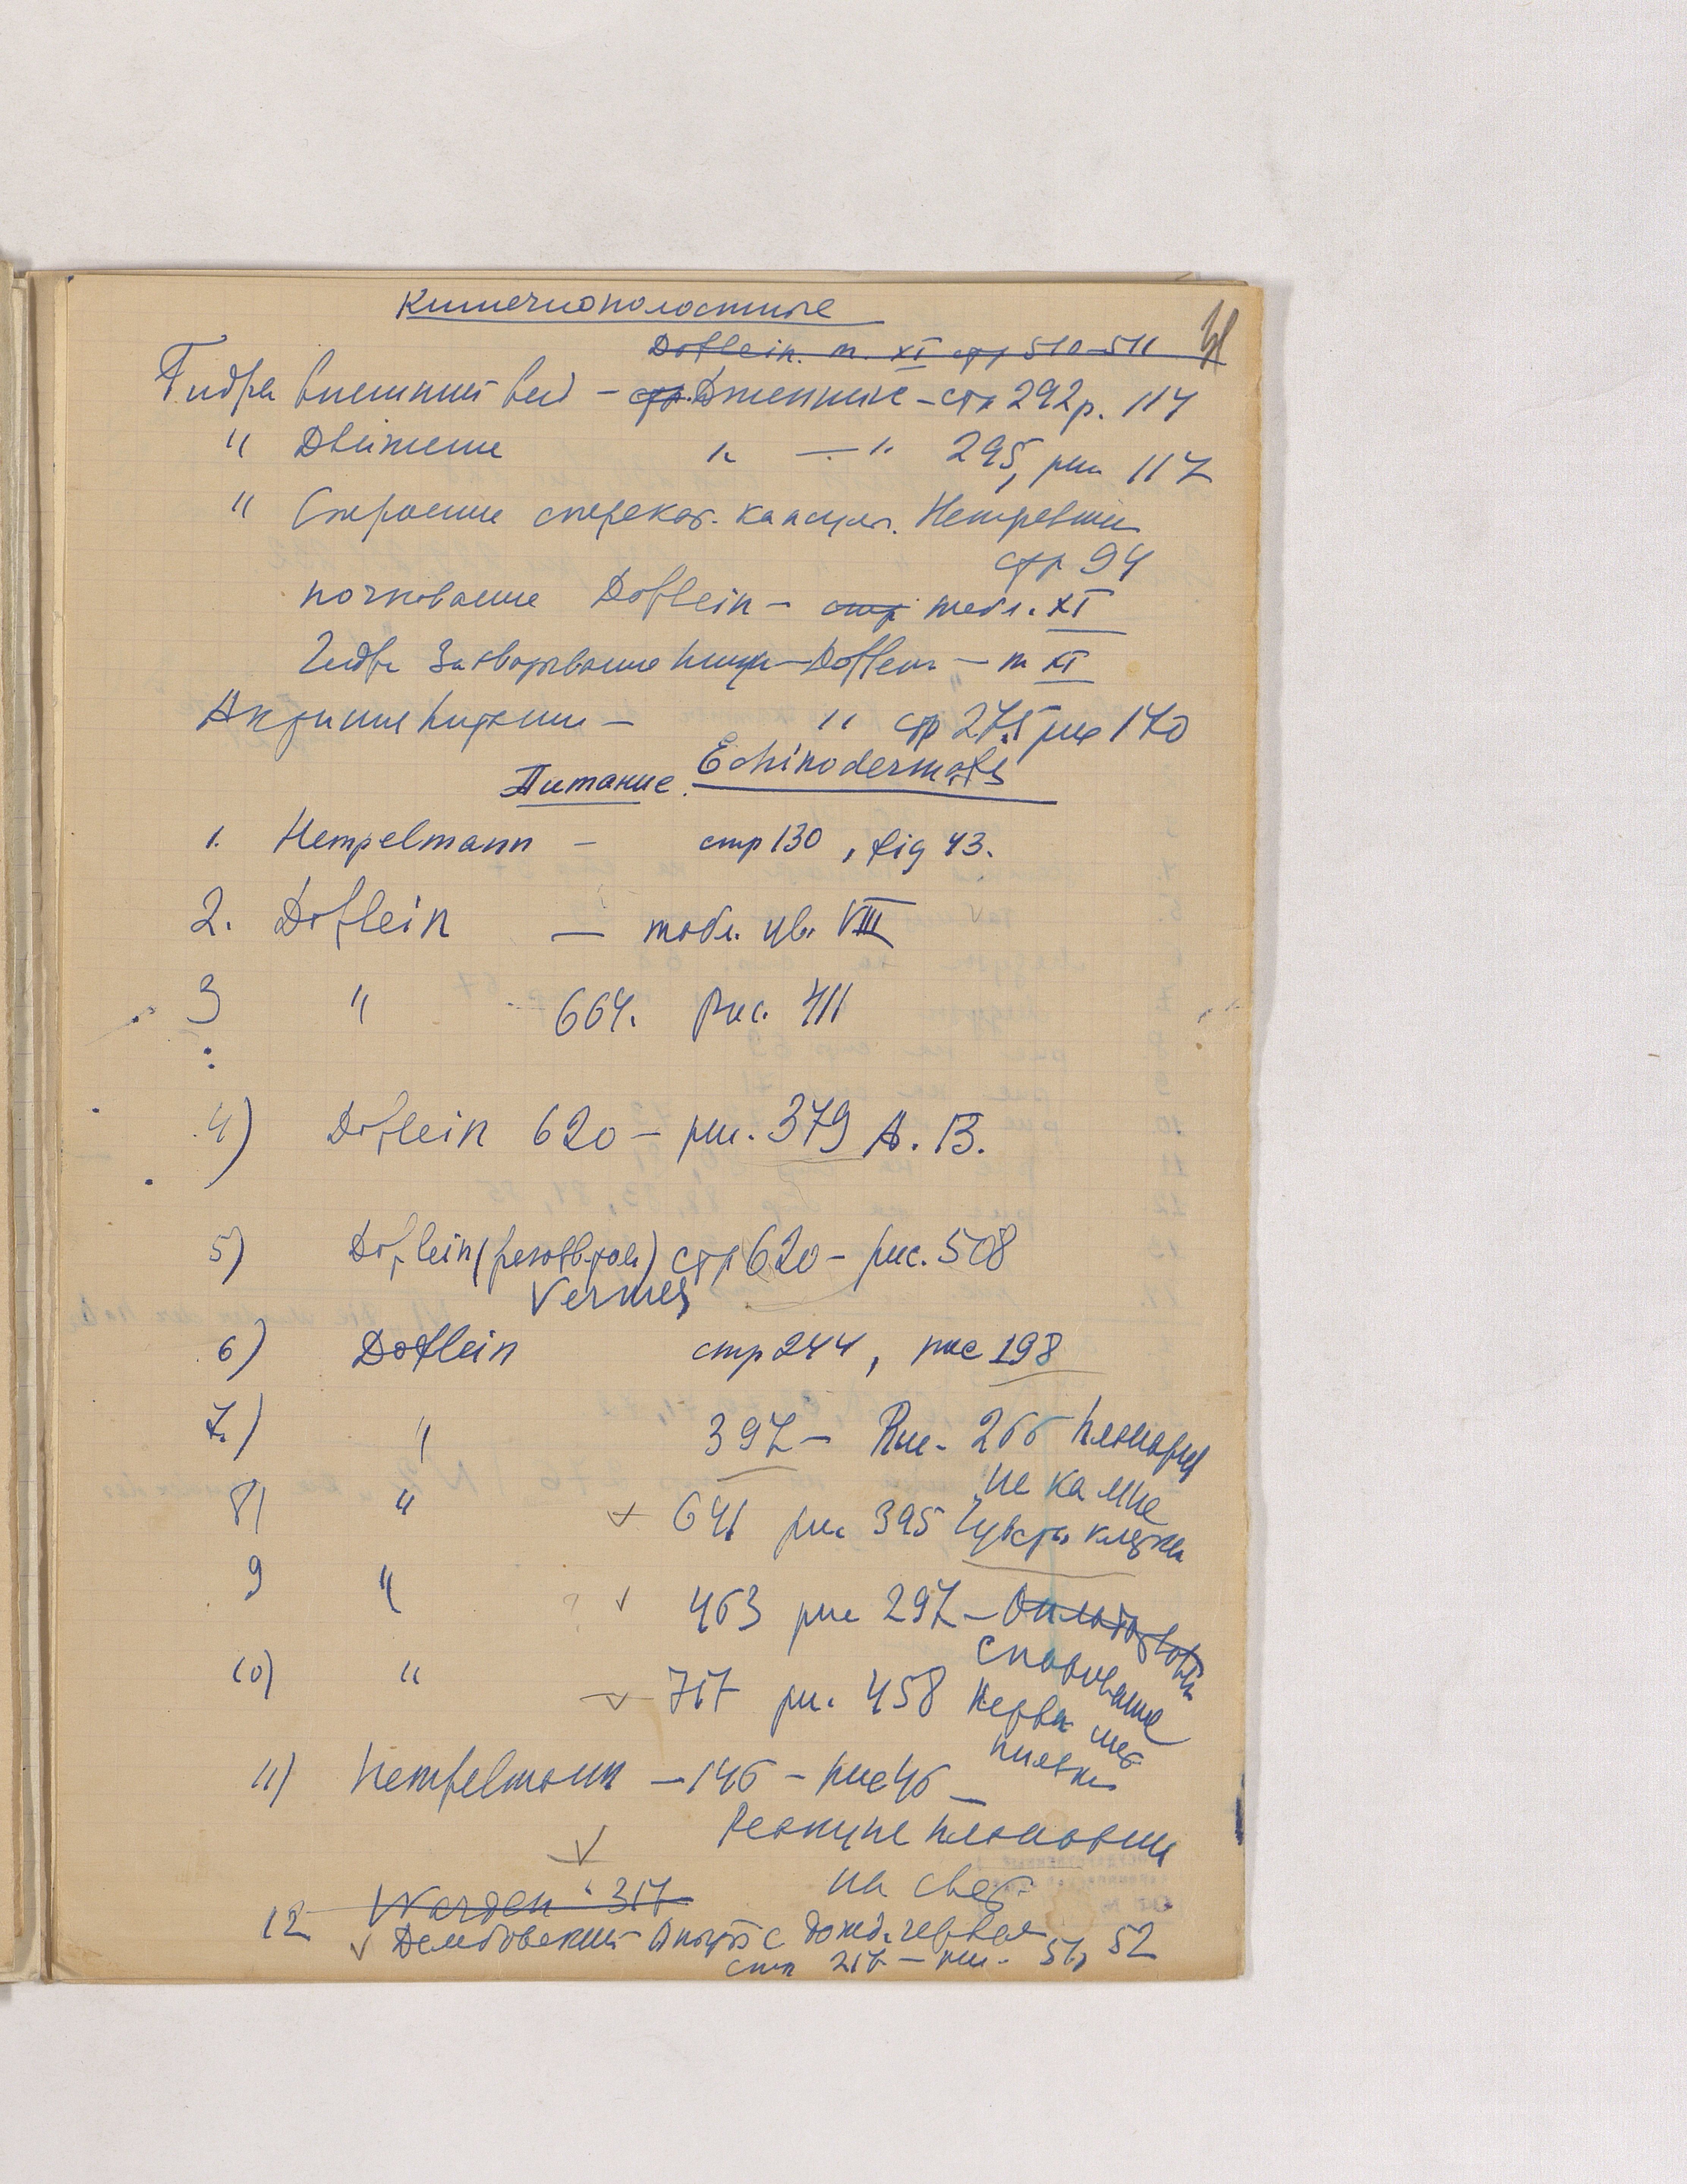 Кишечнополостные
Doflein. т. XI стр 510–511
Гидра внешний вид – стр. Дженнингс – стр 292 р. 117
" Движение " — " 295, рис 117
" Строение стрекат. капсул. Hempelmann
стр 94
почкование Doflein – стр табл. XI
Гидра Захватывание пищи – Doflein – т XI
Актиния питание – " стр 275 рис 170
Питание. Echinodermata
1. Hempelmann – стр 130, fig 43.
2. Doflein — табл. цв. VIII
3 " 664. Рис. 411
4) Doflein 620 – рис. 379 A. B.
5) Doflein ( ) стр 620 – рис. 508
Vermes
6) Doflein стр 244, рис 198
7.) " 397 – Рис. 266 планария
на камне
8) " 641 рис 395 Чувств клетки
9 " 463 рис 297 –
спаривание
10) " 717 рис. 458 Нервн
пиявки
11) Hempelmann – 146 – рис 46 –
Реакция планарии
на свет
Warden 317
12 Дембовский Опыты с дожд. червем
стр 217 – рис. 51, 52